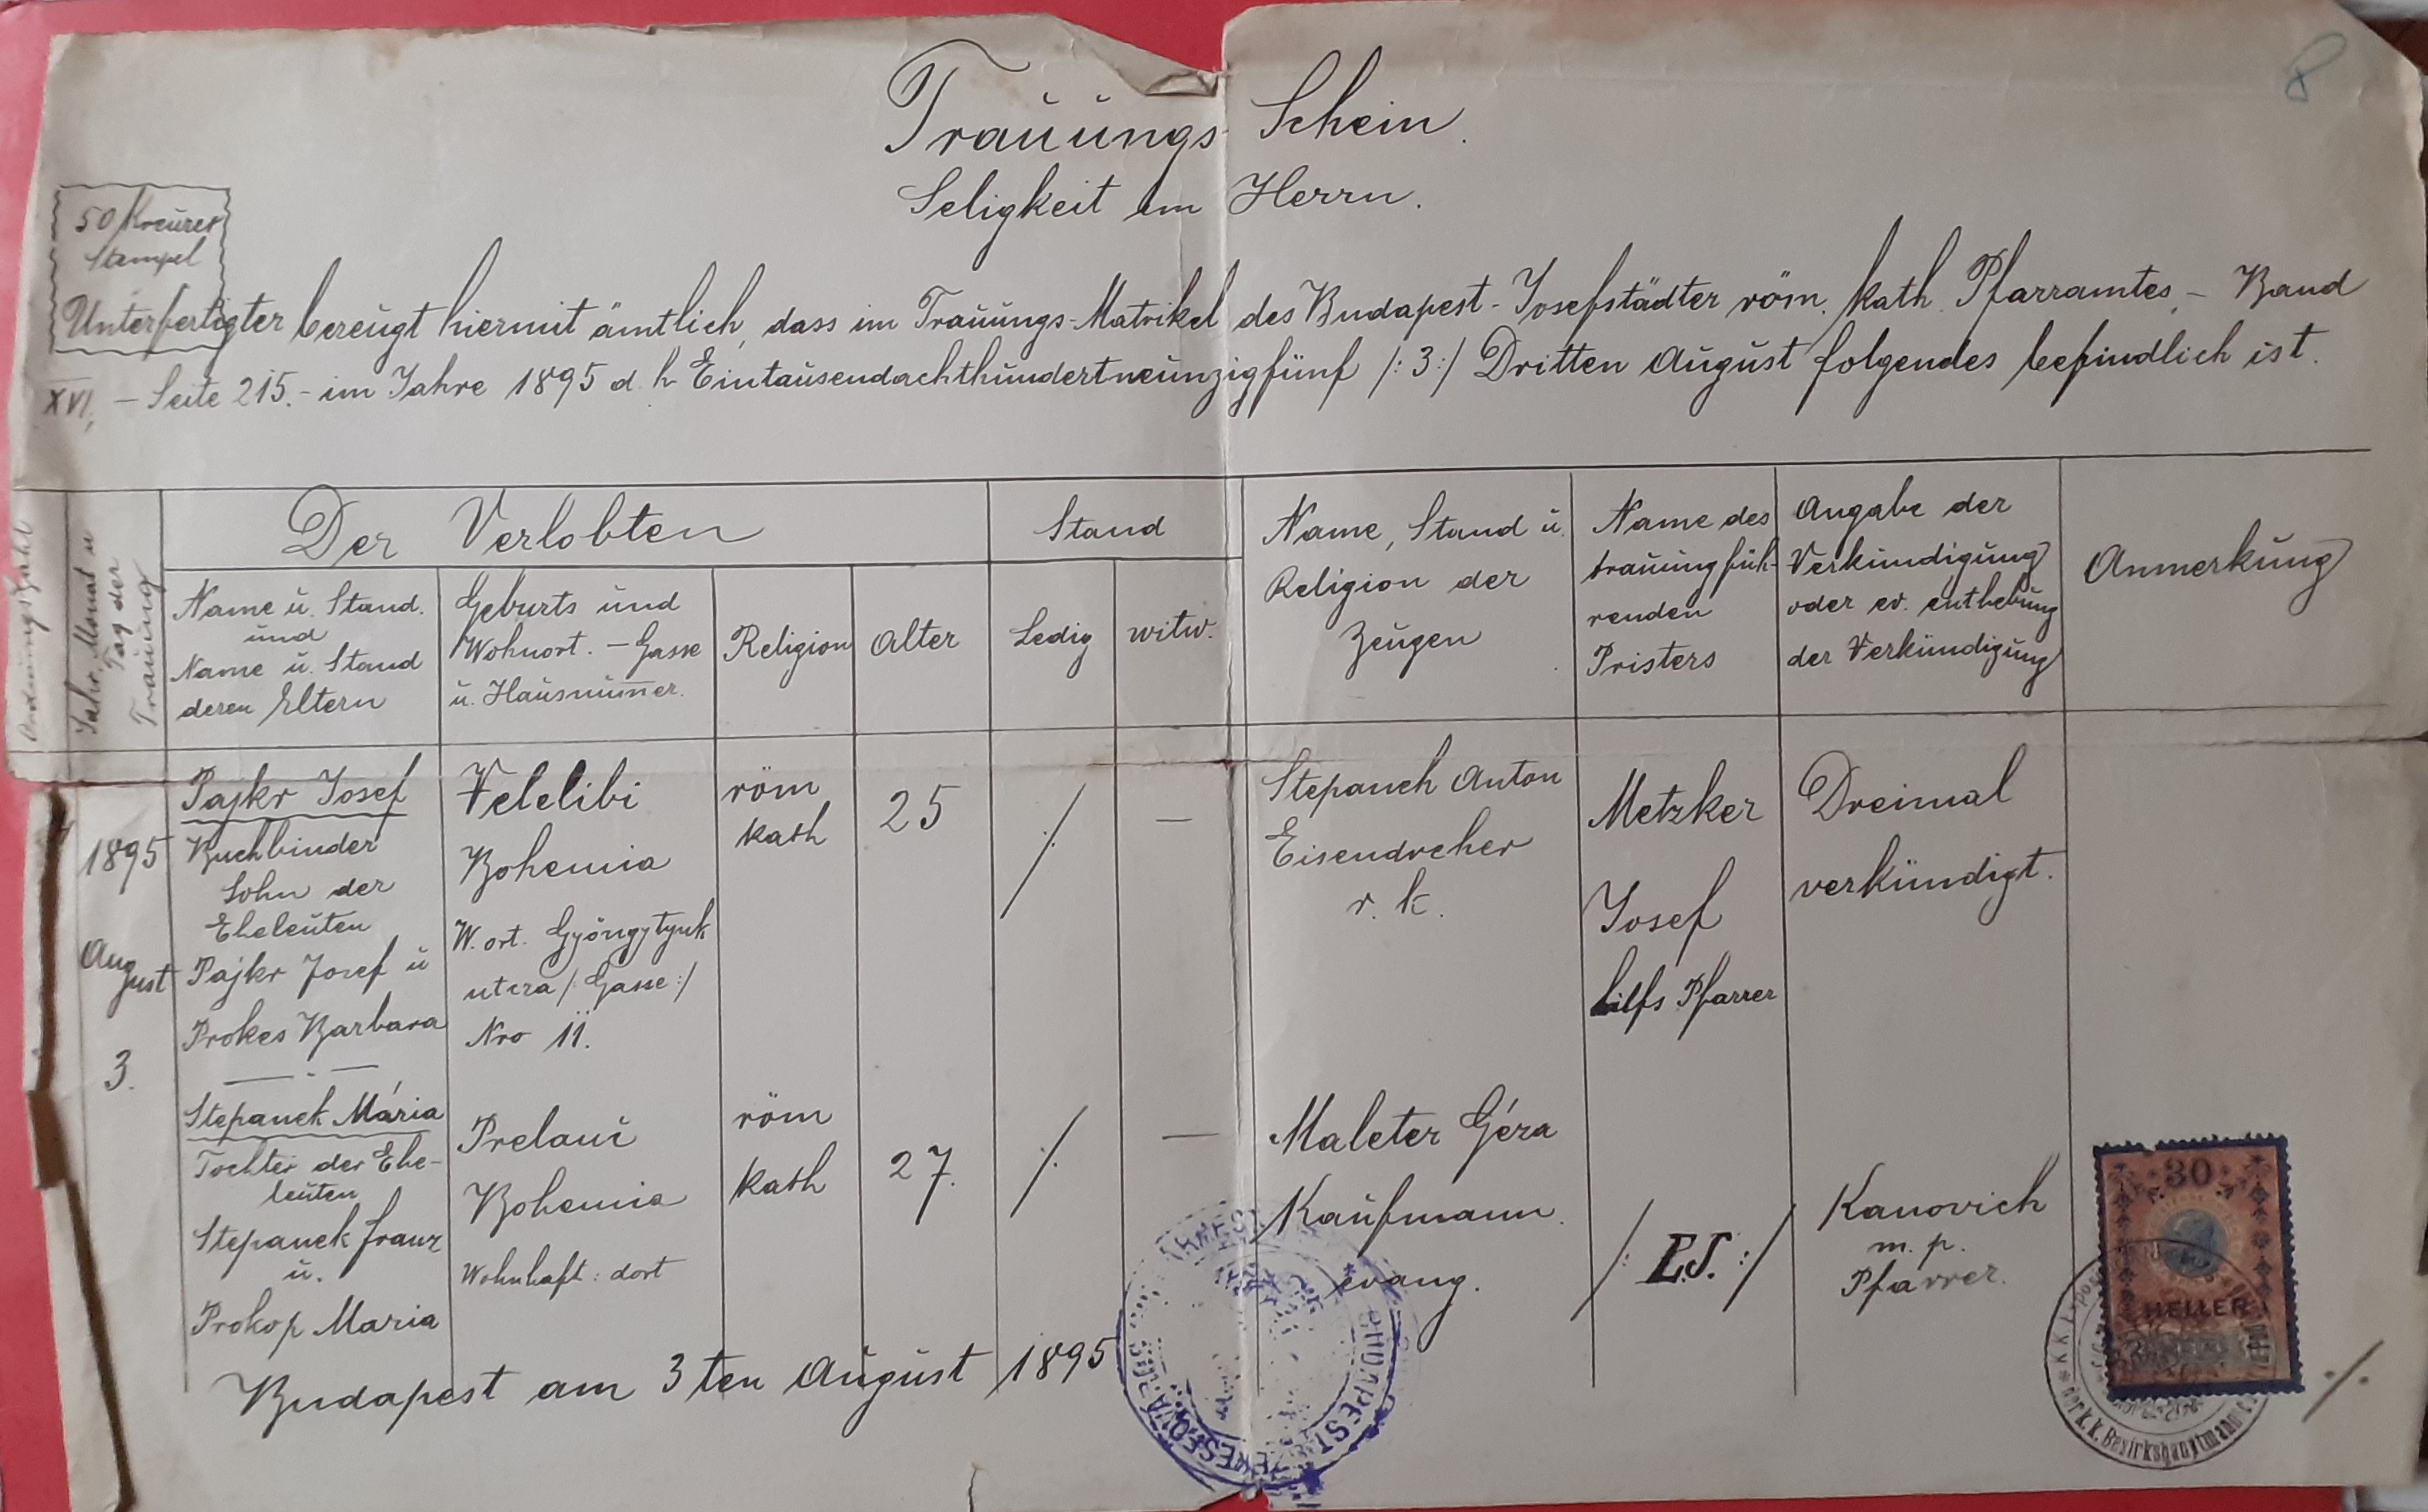 8
Trauungs-Schein.
Seligkeit im Herrn.
50 Kreuzer
Stempel
Unterfertigter bezeugt hiermit ämtlich, dass im Trauungs-Matrikel des Budapest-Josefstädter röm. kath. Pfarramtes, - Band
XVI, - Seite 215. - im Jahre 1895 d. h. Eintausendachthundertneunzigfünf /: 3 :/ Dritten August folgendes befindlich ist.
Ordnungszahl
Jahr, Monat u
Tag der
Trauung
Der Verlobten
Name u. Stand.
und
Name u. Stand
deren Eltern
Geburts und
Wohnort. - Gasse
u. Hausnum̅er.
Religion
Alter
Stand
Ledig
witw.
Name, Stand u.
Religion der
Zeugen
Name des
trauung füh-
renden
Pristers
Angabe der
Verkündigung
oder ev. enthebung
der Verkündigung
Anmerkung
1895
Aug
ust
3.
Pajkr Josef
Buchbinder
Sohn der
Eheleuten
Pajkr Josef u
Prokes Barbara
Velelibi
Bohemia
W. ort. Gyöngytyuk
utcza /: Gasse :/
Nro 11.
röm
kath
25
/.
—
Stepanek Anton
Eisendreher
r. k.
Metzker
Josef
hilfs Pfarrer
Dreimal
verkündigt.
Stepanek Mária
Tochter der Ehe-
leuten
Stepanek Franz
u.
Prokop Maria
Prelaui
Bohemia
Wohnhaft: dort
röm
kath
27.
/.
—
Maleter Géza
Kaufmann.
evang.
/: L.S. :/
Kanovich
m. p.
Pfarrer.
Budapest am 3ten August 1895
BUDAPEST
30
HELLER
der k.k. Bezirkshauptmann
./.